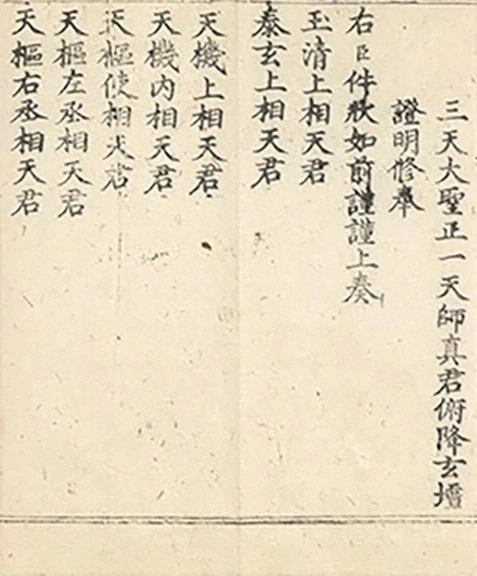 三天大聖正一天師真君俯降玄壇
證明修奉
右臣件狀如前謹謹上奏
玉清上相天君
泰玄上相天君
天機上相天君
天機內相天君
天樞使相天君
天樞左丞相天君
天樞右丞相天君